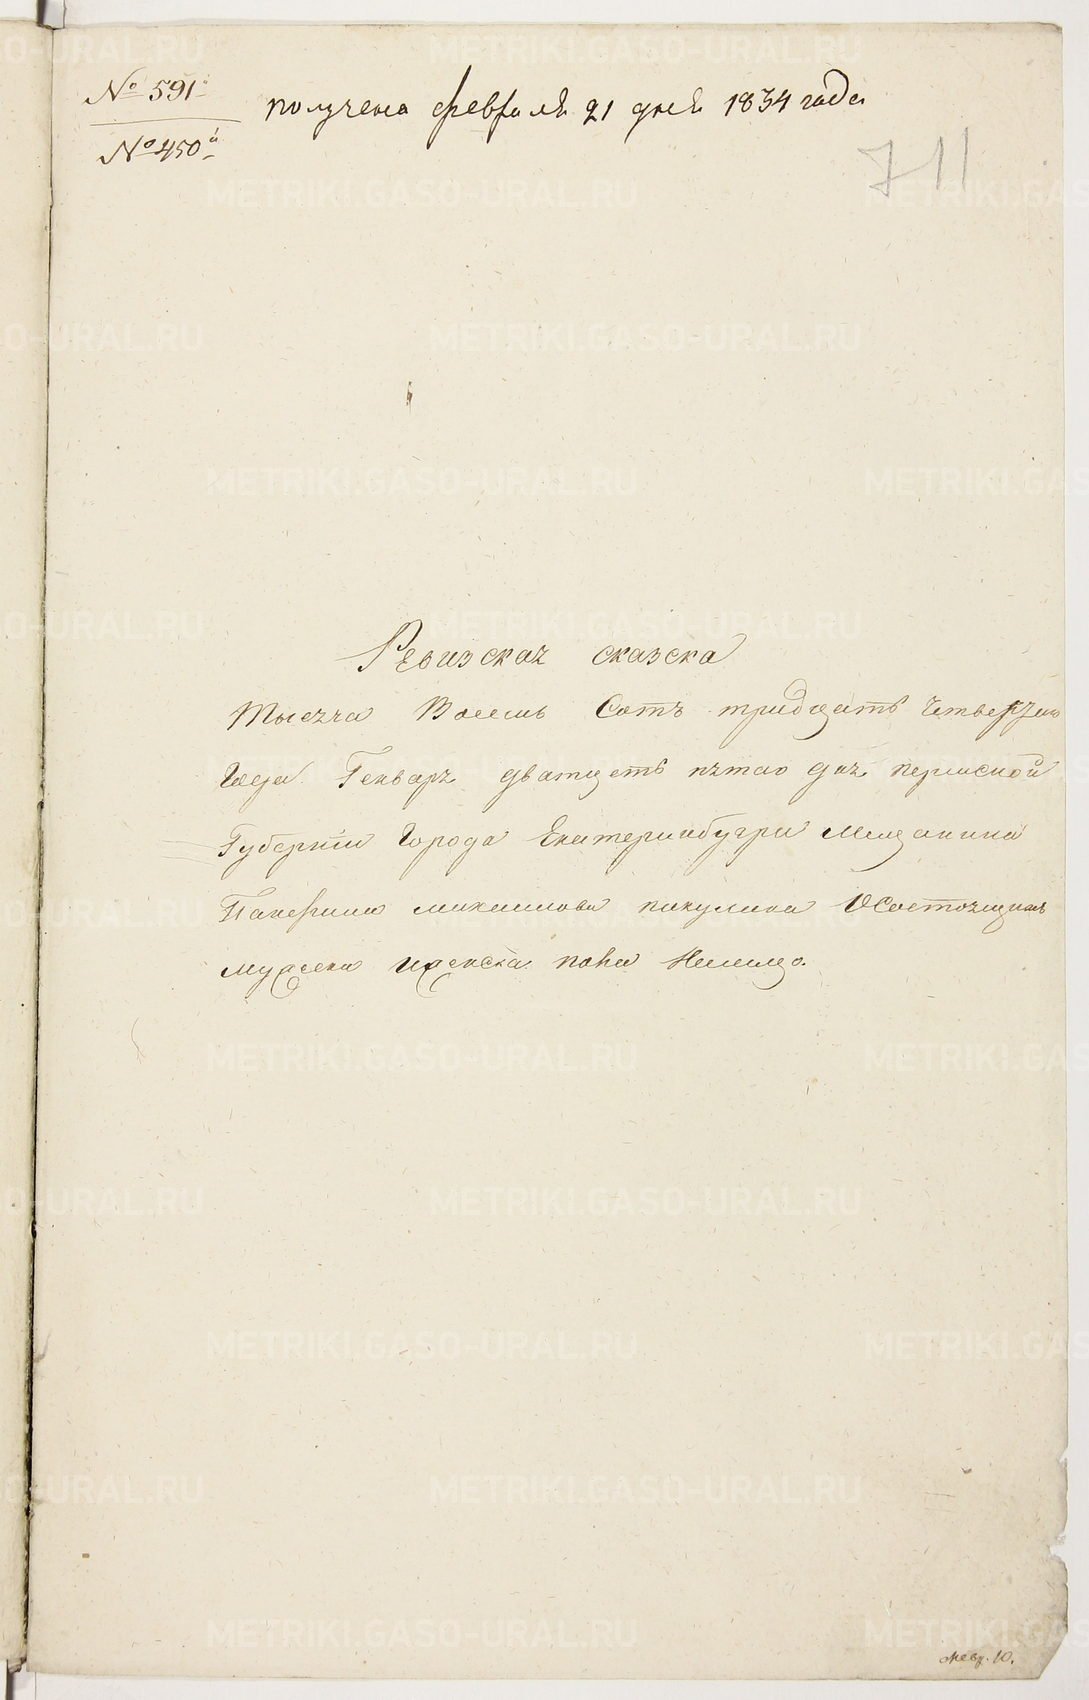 № 591й
получена февраля 21 дня 1834 года
№ 450й
711
Ревизская сказска
Тысяча Восемь Сотъ тридцать четвертаго
Года Генваря дватцеть пятаго дня пермской
Губернии Города Екатеринбугри мещанина
михаилова пикулина О Состоящихъ
мужска и женска пола
METRIKI.GASO-URAL.RU